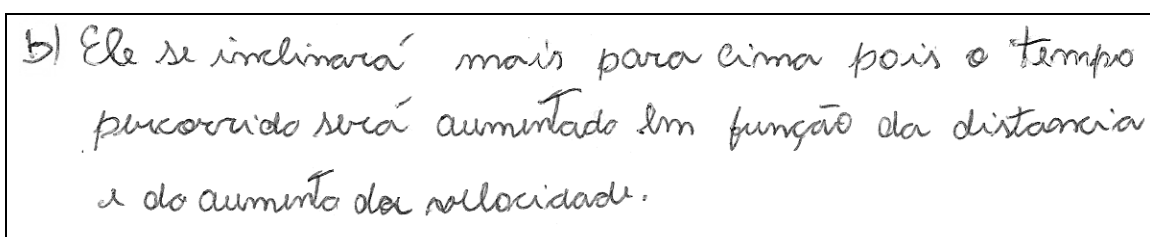 b) Ele se inclinará mais para cima pois o tempo
percorrido será aumentado em função da distancia
e do aumento da vellocidade.